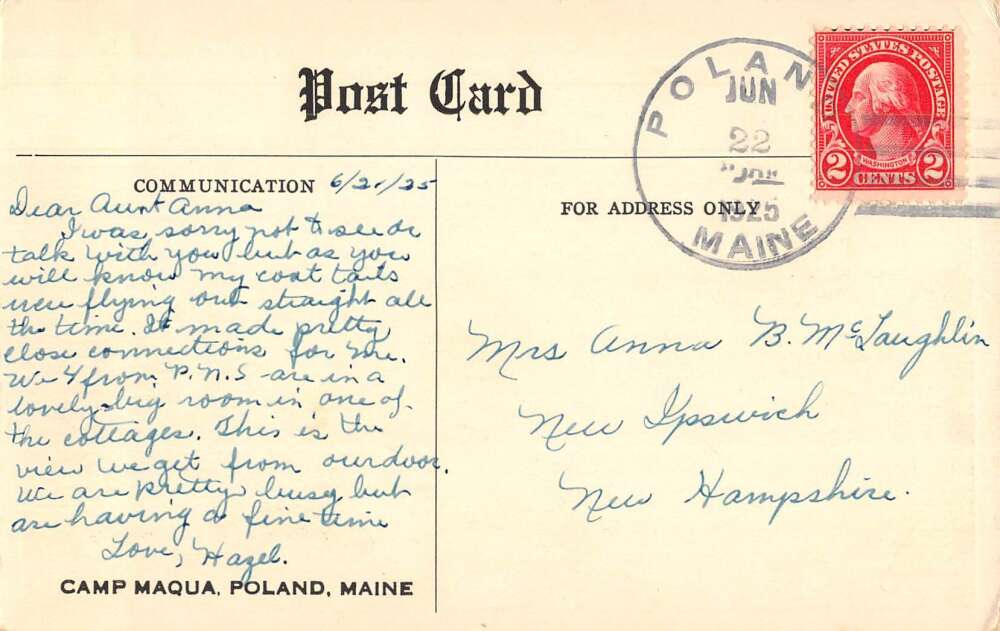 Post Card
COMMUNICATION 6/21/25
Dear Aunt Anna
I was sorry not to see or
talk with you but as you
will know my coat tails
were flying out straight all
the time. It made pretty
close connections for me.
We 4 from P.N.S are in a
lovely big room in one of
the cottages. This is the
view we get from our door.
We are pretty busy but
are having a fine time
Love, Hazel.
CAMP MAQUA, POLAND, MAINE
FOR ADDRESS ONLY
POLAN
JUN
22
1925
MAINE
UNITED STATES POSTAGE
WASHINGTON
2 CENTS 2
Mrs Anna B. McLaughlin
New Ipswich
New Hampshire.